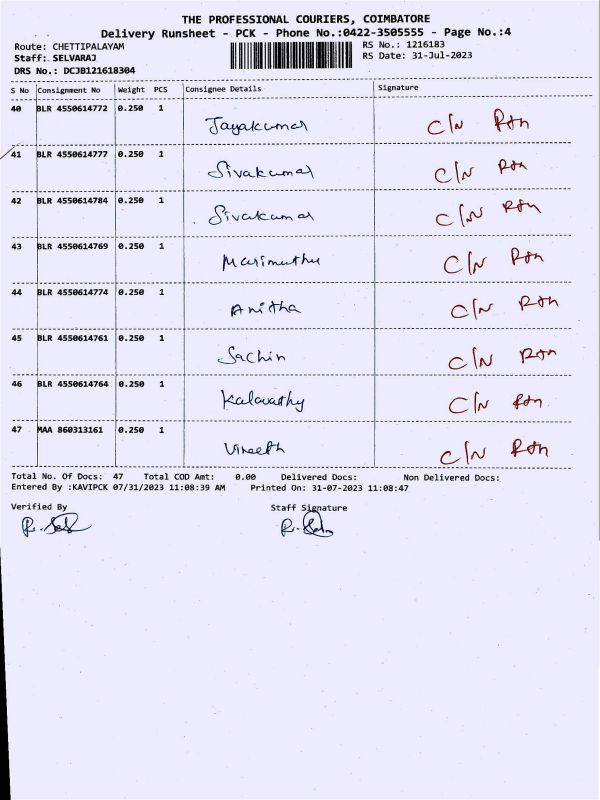 THE PROFESSIONAL COURIERS, COIMBATORE
Delivery Runsheet - PCK - Phone No.:0422-3505555 - Page No.:4
Route: CHETTIPALAYAM RS No.: 1216183
Staff: SELVARAJ RS Date: 31-Jul-2023
DRS No.: DCJB121618304
S No Consignment No Weight PCS Consignee Details Signature
40 BLR 4550614772 0.250 1 Jayakumar C/N Rtn
41 BLR 4550614777 0.250 1 Sivakumar C/N Rtn
42 BLR 4550614784 0.250 1 Sivakumar C/N Rtn
43 BLR 4550614769 0.250 1 Marimuthu C/N Rtn
44 BLR 4550614774 0.250 1 Anitha C/N Rtn
45 BLR 4550614761 0.250 1 Sachin C/N Rtn
46 BLR 4550614764 0.250 1 Kalavathy C/N Rtn
47 MAA 860313161 0.250 1 Vineeth C/N Rtn
Total No. Of Docs: 47 Total COD Amt: 0.00 Delivered Docs: Non Delivered Docs:
Entered By :KAVIPCK 07/31/2023 11:08:39 AM Printed On: 31-07-2023 11:08:47
Verified By Staff Signature